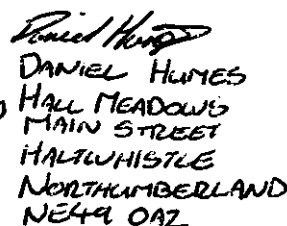 Daniel Humes
DANIEL HUMES
HALL MEADOWS
MAIN STREET
HALTWHISTLE
NORTHUMBERLAND
NE49 0AZ